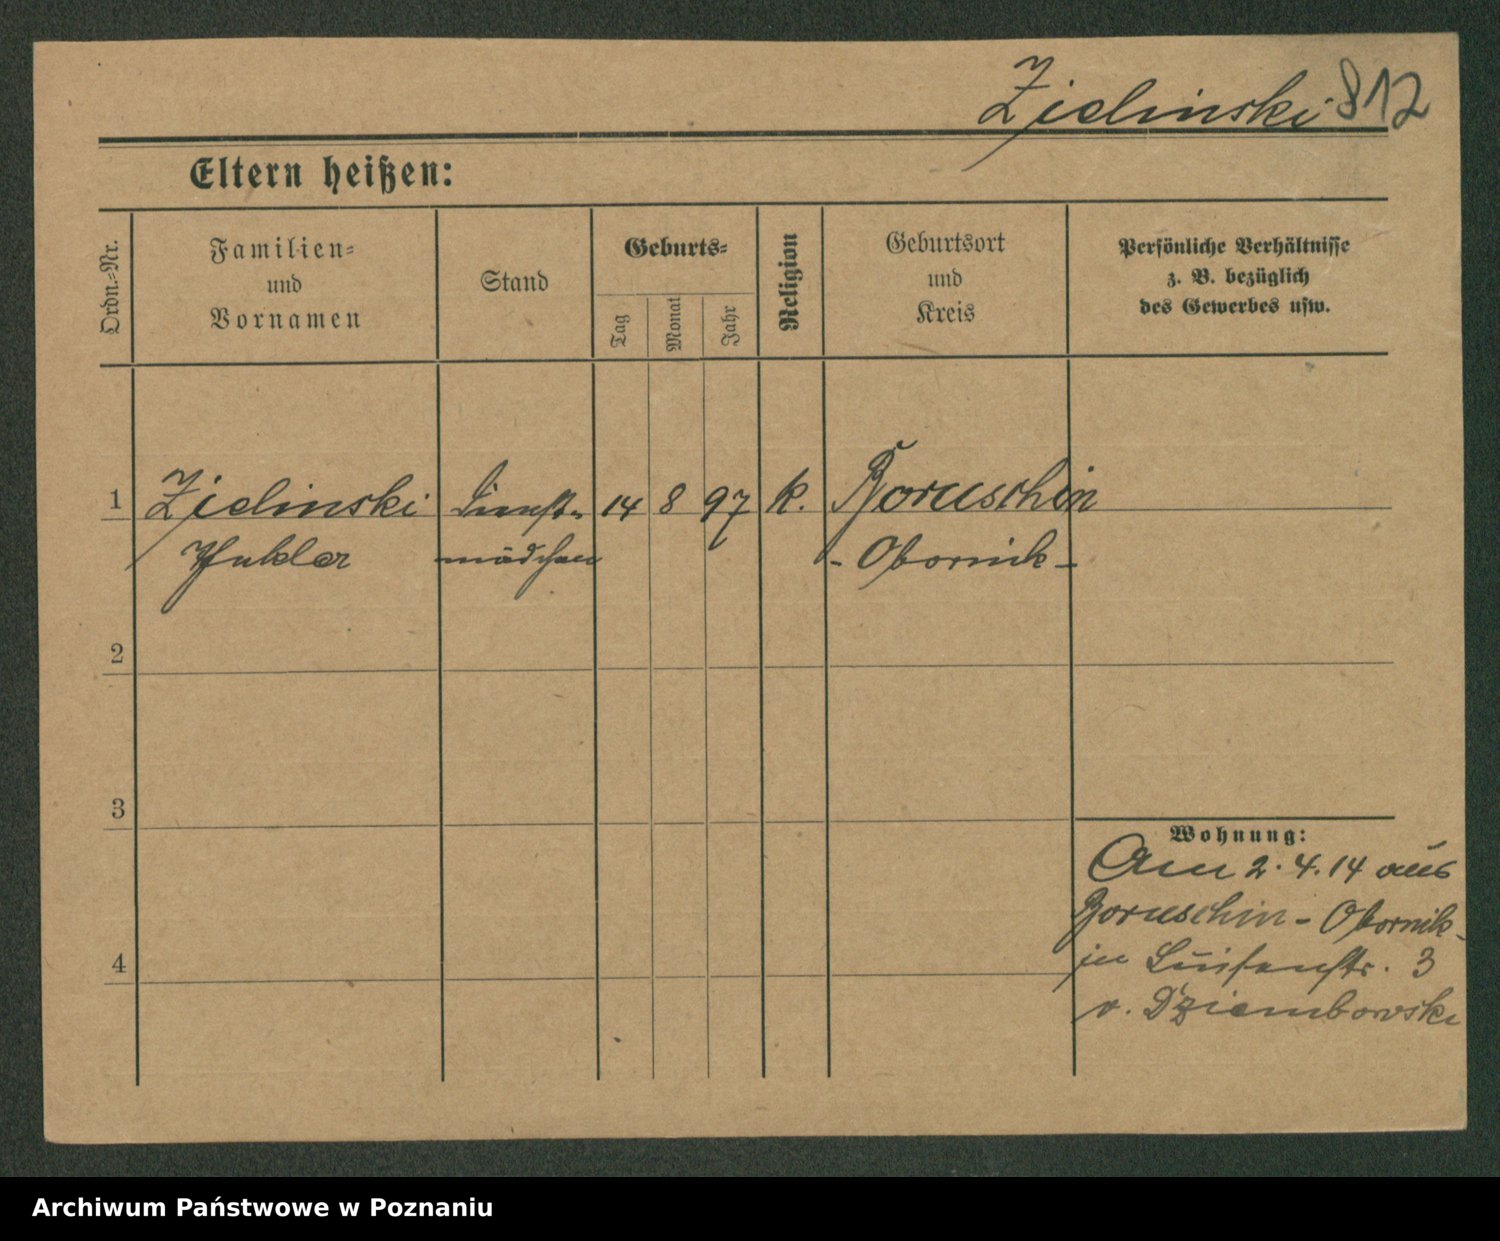 Zielinski 812
Eltern heißen:
Ordn.-Nr.
Familien-
und
Vornamen
Stand
Geburts-
Tag
Monat
Jahr
Religion
Geburtsort
und
Kreis
Persönliche Verhältnisse
z. B. bezüglich
des Gewerbes usw.
1 Zielinski Dienst- 14 8 97 k. Boruschin
mädchen - Obornik -
2
3
4
Wohnung:
Am 2.4.14 aus
Boruschin - Obornik
in Luisenstr. 3
v. Dziembowski
Archiwum Państwowe w Poznaniu